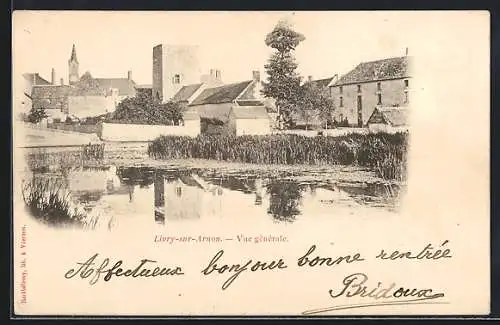 Livry-sur-Arnon. — Vue générale.
Affectueux bonjour bonne rentrée
Bridoux
Barthélemy, lib. à Vierzon.